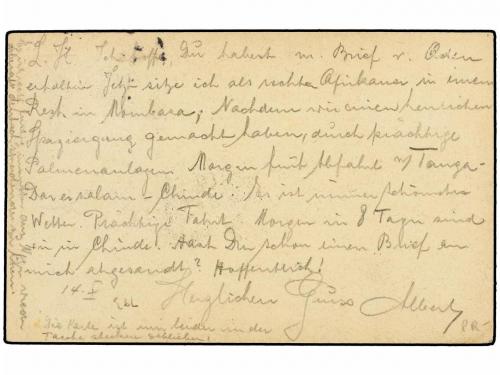 L. H. Ich hoffe, Du habest m. Brief v. Aden
erhalten. Jetzt sitze ich als rechter Afrikaner in einem
Rest. in Mombasa; Nachdem wir einen herrlichen
Spaziergang gemacht haben, durch prächtige
Palmenanlagen. Morgen früh Abfahrt n/ Tanga-
Daressalam - Chinde. Es ist immer schönstes
Wetter. Prächtige Fahrt. Morgen in 8 Tagen sind
wir in Chinde. Hast Du schon einen Brief an
mich abgesandt? Hoffentlich!
14. X Herzlichen Gruss Albert
Die Karte ist mir leider in der
Tasche stecken geblieben!